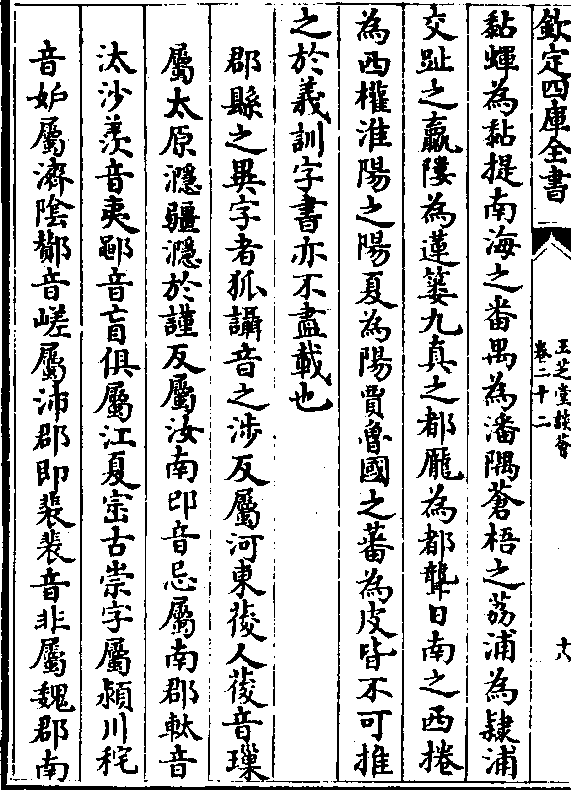 欽定四庫全書
玉芝堂談薈
卷二十二
十六
黏蟬為黏提南海之番禺為潘隅蒼梧之荔浦為隷浦
交趾之羸𨻻為蓮蔞九真之都龎為都聾日南之西捲
為西權淮陽之陽夏為陽賈魯國之蕃為皮皆不可推
之於義訓字書亦不盡載也
郡縣之異字者狐讘音之涉反屬河東葰人葰音璅
屬太原㶏疆㶏於謹反屬汝南邔音忌屬南郡軑音
汰沙羨音夷鄳音盲俱屬江夏崈古崇字屬潁川秺
音妒屬濟陰酇音嵯屬沛郡即裴裴音非屬魏郡南